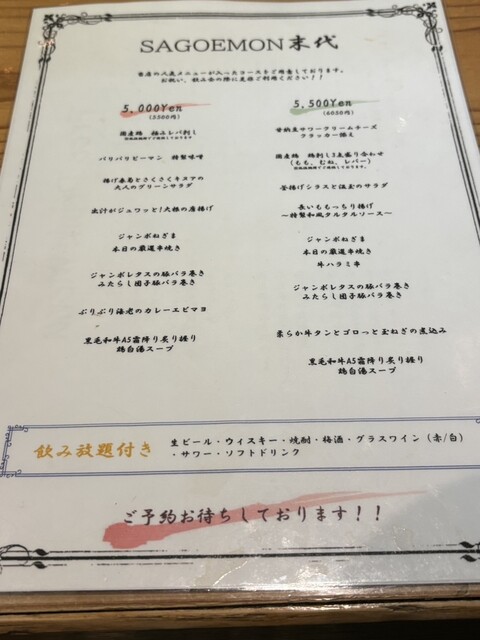 SAGOEMON末代
当店の人気メニューが入ったコースをご用意しております。
お祝い、飲み会の際に是非ご利用ください！！
5,000Yen
(5500円)
国産鶏 極みレバ刺し
パリパリピーマン 特製味噌
揚げ春菊とさくさくキヌアの
大人のグリーンサラダ
出汁がジュワッと！大根の唐揚げ
ジャンボねぎま
本日の厳選串焼き
ジャンボレタスの豚バラ巻き
みたらし団子豚バラ巻き
ぷりぷり海老のカレーエビマヨ
黒毛和牛A5霜降り炙り握り
鶏白湯スープ
5,500Yen
(6050円)
サワークリームチーズ
クラッカー添え
国産鶏 鶏刺し3点盛り合わせ
(もも、むね、レバー)
釜揚げシラスと温玉のサラダ
長いももっちり揚げ
～特製和風タルタルソース～
ジャンボねぎま
本日の厳選串焼き
牛ハラミ串
ジャンボレタスの豚バラ巻き
みたらし団子豚バラ巻き
柔らか牛タンとゴロっと玉ねぎの煮込み
黒毛和牛A5霜降り炙り握り
鶏白湯スープ
飲み放題付き
生ビール・ウイスキー・焼酎・梅酒・グラスワイン（赤/白）
・サワー・ソフトドリンク
ご予約お待ちしております！！